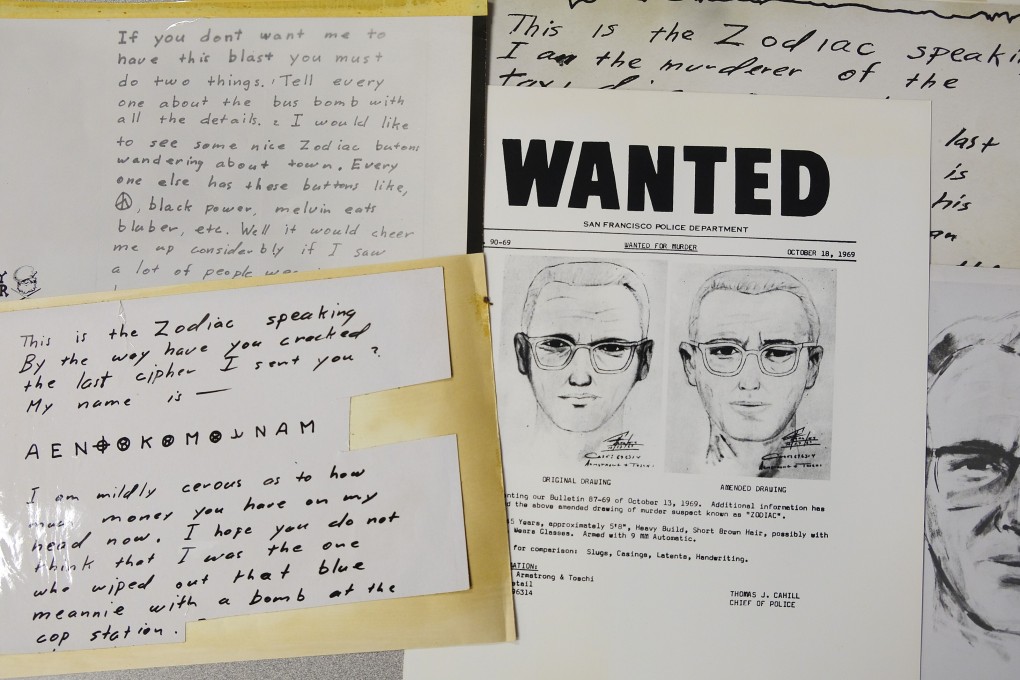 If you dont want me to
have this blast you must
do two things. Tell every
one about the bus bomb with
all the details. 2 I would like
to see some nice Zodiac butons
wandering about town. Every
one else has these buttons like,
☮, black power, melvin eats
bluber, etc. Well it would cheer
me up considerbly if I saw
a lot of people
This is the Zodiac speaking
By the way have you cracked
the last cipher I sent you?
My name is —
A E N ⌖ K M ⊥ N A M
I am mildly cerous as to how
much money you have on my
head now. I hope you do not
think that I was the one
who wiped out that blue
meannie with a bomb at the
cop station.
This is the Zodiac
I am the murderer of the
last
is
his
WANTED
SAN FRANCISCO POLICE DEPARTMENT
90-69 WANTED FOR MURDER OCTOBER 18, 1969
ORIGINAL DRAWING AMENDED DRAWING
our Bulletin 87-69 of October 13, 1969. Additional information has
the above amended drawing of murder suspect known as "ZODIAC".
Years, approximately 5'8", Heavy Build, Short Brown Hair, possibly with
Wears Glasses. Armed with 9 MM Automatic.
for comparison: Slugs, Casings, Latents, Handwriting.
Armstrong & Toschi
THOMAS J. CAHILL
CHIEF OF POLICE